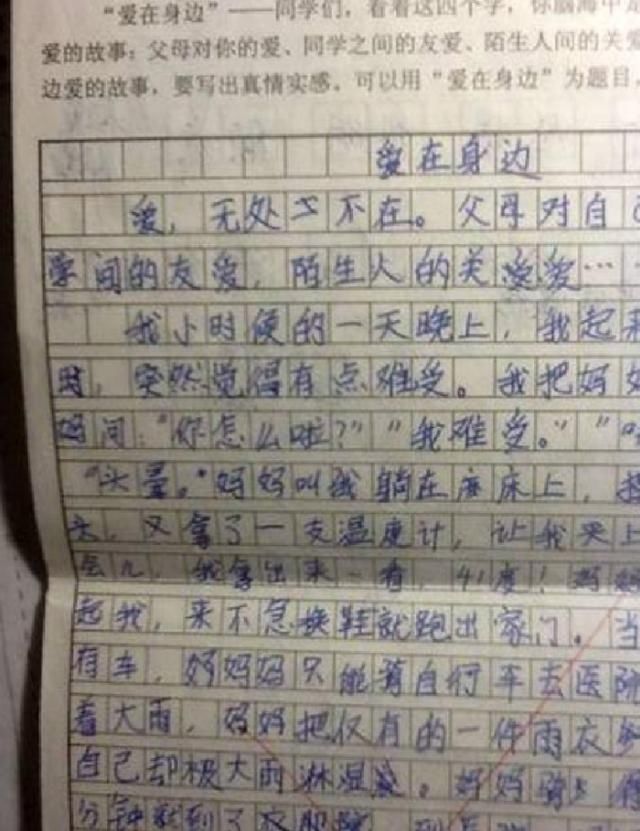 “爱在身边”——同学们，看着这四个字，你脑海中
爱的故事：父母对你的爱、同学之间的友爱、陌生人间的关爱
边爱的故事，要写出真情实感。可以用“爱在身边”为题目，
爱在身边
爱，无处不在。父母对自
学间的友爱，陌生人的关爱……
我小时候的一天晚上，我起来
时，突然觉得有点难受。我把妈妈
妈问：“你怎么啦？”“我难受。”“
“头晕。”妈妈叫我躺在床上，
头，又拿了一支温度计，让我夹上
会儿，我拿出来一看，41度！妈妈
起我，来不急换鞋就跑出家门。当
有车，妈妈只能骑自行车去医院
着大雨，妈妈把仅有的一件雨衣
自己却被大雨淋湿。妈妈骑
分钟就到了